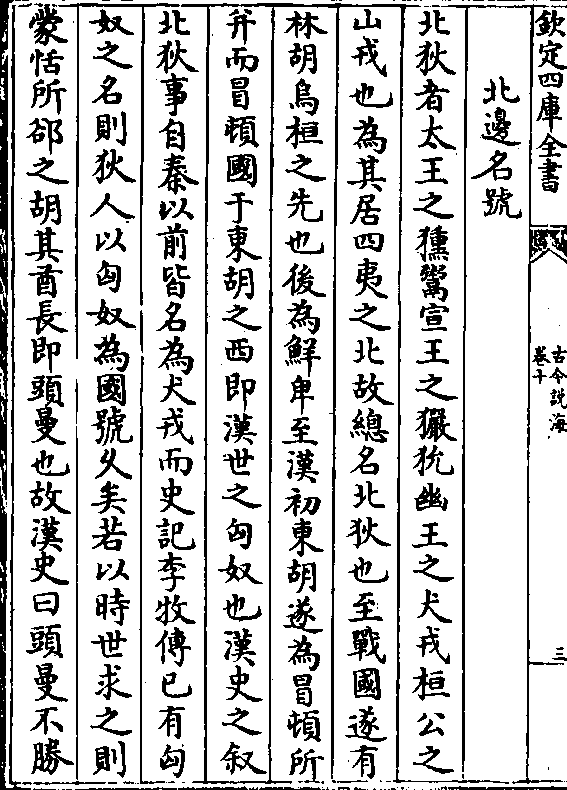 欽定四庫全書
古今説海
卷十
三
北邊名號
北狄者太王之獯鬻宣王之玁狁幽王之犬戎桓公之
山戎也為其居四夷之北故總名北狄也至戰國遂有
林胡烏桓之先也後為鮮卑至漢初東胡遂為冒頓所
并而冒頓國于東胡之西即漢世之匈奴也漢史之叙
北狄事自秦以前皆名為犬戎而史記李牧傳已有匈
奴之名則狄人以匈奴為國號乆矣若以時世求之則
蒙恬所郤之胡其酋長即頭曼也故漢史曰頭曼不勝